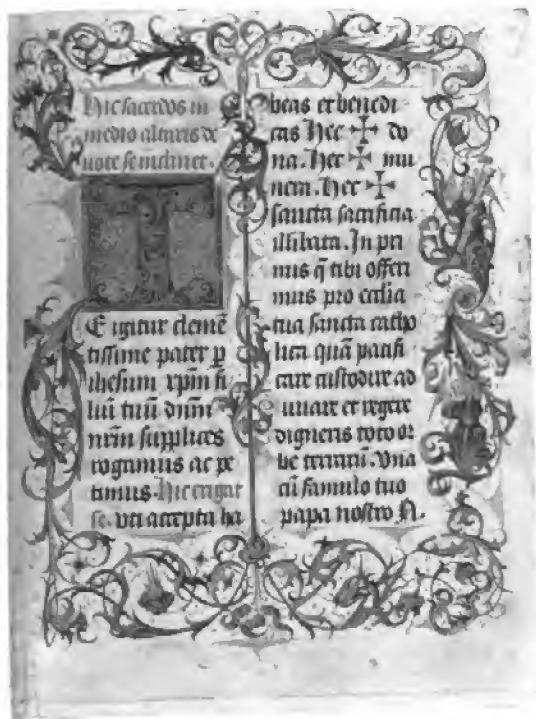 Hic sacerdos in
medio altaris de
uote se inclinet.
T
E igitur clemē
tissime pater p
ihesum xpm fi
liū tuū dnm
nrm supplices
rogamus ac pe
timus. Hic erigat
se. vti accepta ha
beas et benedi
cas Hec ✠ do
na. Hec ✠ mu
nera. Hec ✠
sancta sacrificia
illibata. In pri
mis q̄ tibi offeri
mus pro ecclia
tua sancta catho
lica quā pacifi
care custodire ad
unare et regere
digneris toto or
be terrarū. Vna
cū famulo tuo
papa nostro N.